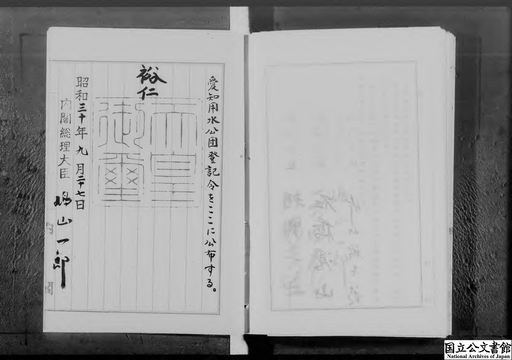 愛知用水公団登記令をここに公布する。
裕仁
天皇御璽
昭和三十年九月二十七日
内閣総理大臣 鳩山一郎
国立公文書館
National Archives of Japan